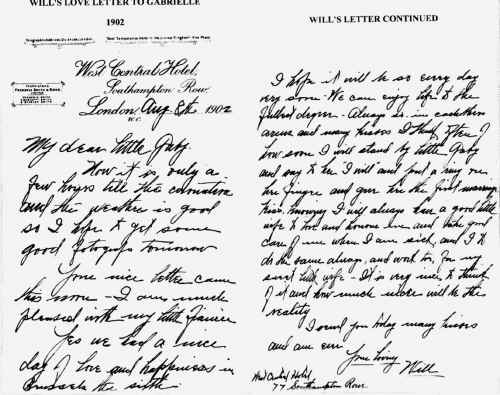 WILL'S LOVE LETTER TO GABRIELLE
1902
West Central Hotel,
Southampton Row,
London, Aug 8th 1902
W.C.
My dear little Gaby.
Now it is only a
few hours till the coronation
and the weather is good
so I hope to get some
good fotografs tomorrow
Your nice letter came
this morn - I am much
pleased with my little fiancee
Yes we had a nice
day of love and happiness in
Brussels the sixth.
WILL'S LETTER CONTINUED
I hope it will be so every day
very soon - We can enjoy life to the
fullest degree. Always in each others
arms and many kisses I think often of
how soon I will stand by little Gaby
and say to her "I will" and put a ring on
her finger and give her the first marriage
kiss knowing I will always have a good little
wife to love and honour love and take good
care of me when I am sick, and I to
do the same always, and work too for my
sweet little wife - It is very nice to think
of it and how much nicer will be the
reality
I send you today many kisses
and am ever
Your loving
Will
West Central Hotel
77 Southampton Row